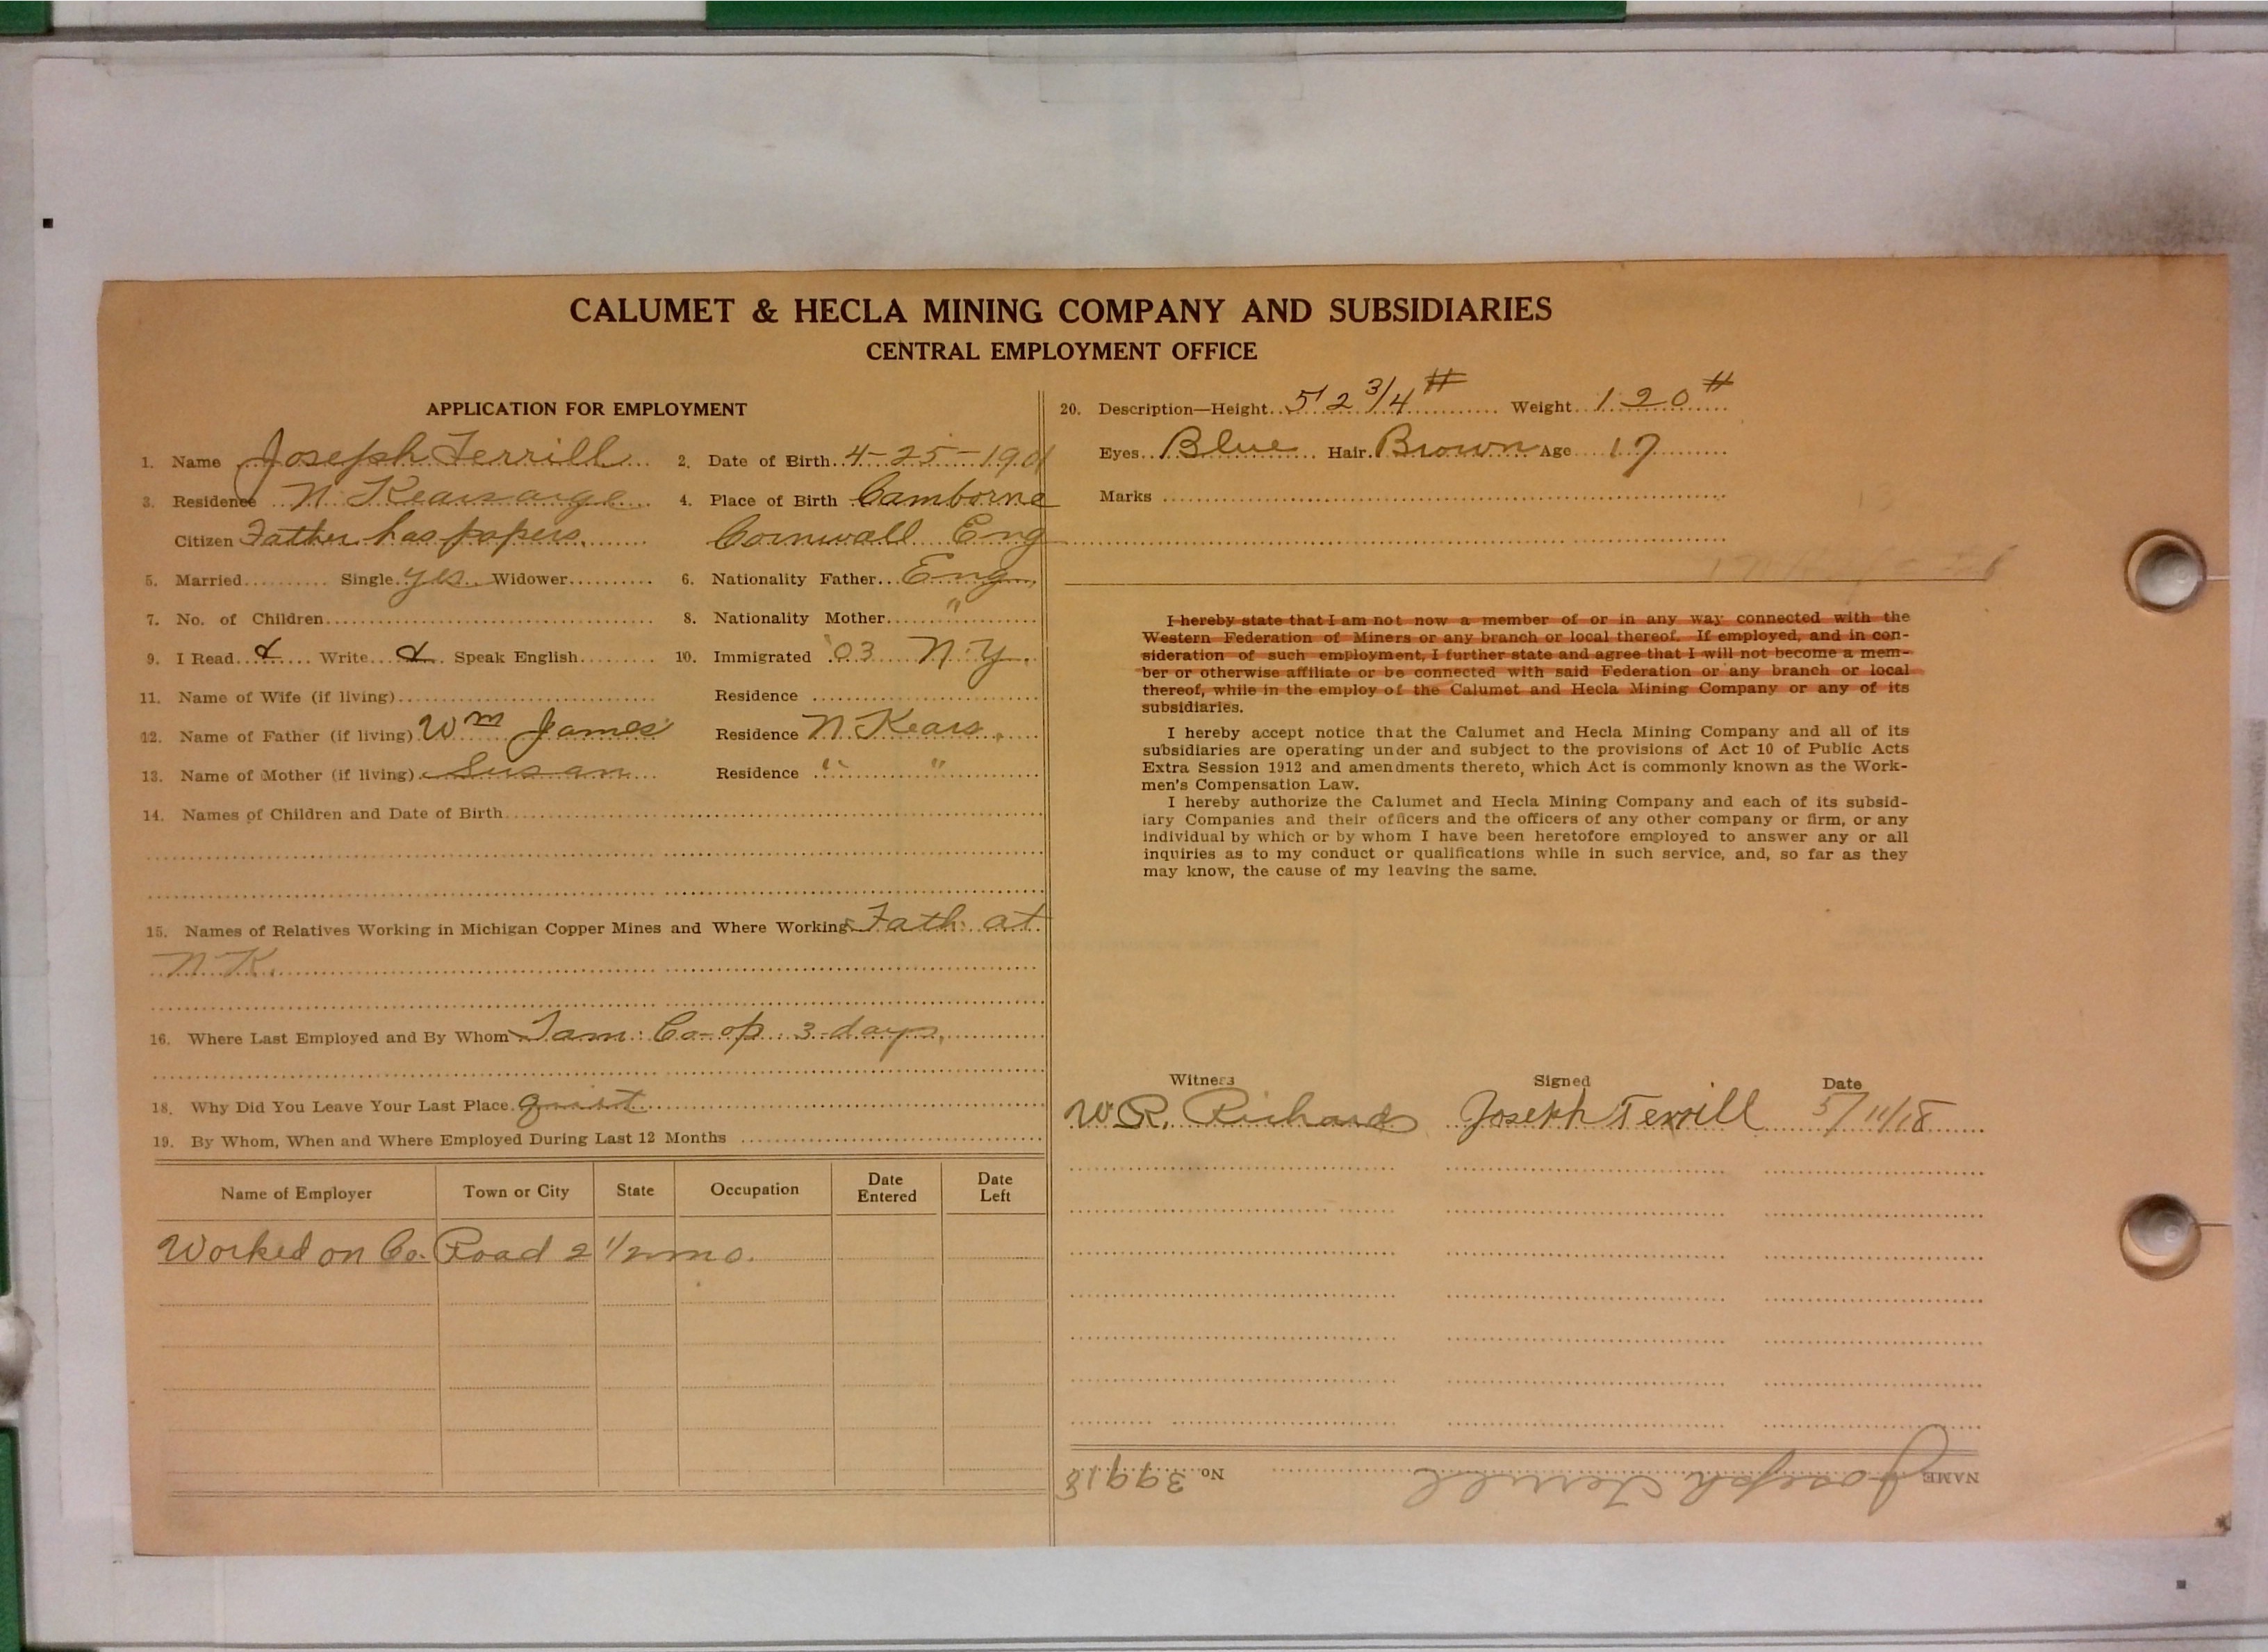 CALUMET & HECLA MINING COMPANY AND SUBSIDIARIES
CENTRAL EMPLOYMENT OFFICE
APPLICATION FOR EMPLOYMENT
1. Name Joseph Terrill 2. Date of Birth 4-25-1901
3. Residence N. Kearsarge 4. Place of Birth Camborne
Citizen Father has papers. Cornwall Eng
5. Married Single yes Widower 6. Nationality Father Eng.
7. No. of Children 8. Nationality Mother "
9. I Read & Write & Speak English 10. Immigrated '03 N.Y.
11. Name of Wife (if living) Residence
12. Name of Father (if living) Wm James Residence N. Kears.
13. Name of Mother (if living) Susan Residence " "
14. Names of Children and Date of Birth
15. Names of Relatives Working in Michigan Copper Mines and Where Working Fath. at
N.K.
16. Where Last Employed and By Whom Tam. Co-op 3 days.
18. Why Did You Leave Your Last Place
19. By Whom, When and Where Employed During Last 12 Months
Name of Employer Town or City State Occupation Date Entered Date Left
Worked on Co. Road 2 1/2 mo.
20. Description—Height 5' 2 3/4 " Weight 120 #
Eyes Blue Hair Brown Age 17
Marks
I hereby state that I am not now a member of or in any way connected with the
Western Federation of Miners or any branch or local thereof. If employed, and in con-
sideration of such employment, I further state and agree that I will not become a mem-
ber or otherwise affiliate or be connected with said Federation or any branch or local
thereof, while in the employ of the Calumet and Hecla Mining Company or any of its
subsidiaries.
I hereby accept notice that the Calumet and Hecla Mining Company and all of its
subsidiaries are operating under and subject to the provisions of Act 10 of Public Acts
Extra Session 1912 and amendments thereto, which Act is commonly known as the Work-
men's Compensation Law.
I hereby authorize the Calumet and Hecla Mining Company and each of its subsid-
iary Companies and their officers and the officers of any other company or firm, or any
individual by which or by whom I have been heretofore employed to answer any or all
inquiries as to my conduct or qualifications while in such service, and, so far as they
may know, the cause of my leaving the same.
Witness Signed Date
W.R. Richards Joseph Terrill 5/11/18
NAME Joseph Terrill No. 39918